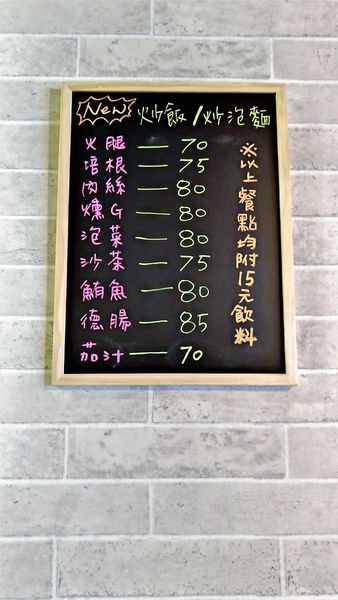 New 炒飯/炒泡麵
火腿 — 70
培根 — 75
肉絲 — 80
燻G — 80
泡菜 — 80
沙茶 — 75
鮪魚 — 80
德腸 — 85
茄汁 — 70
※以上餐點均附15元飲料